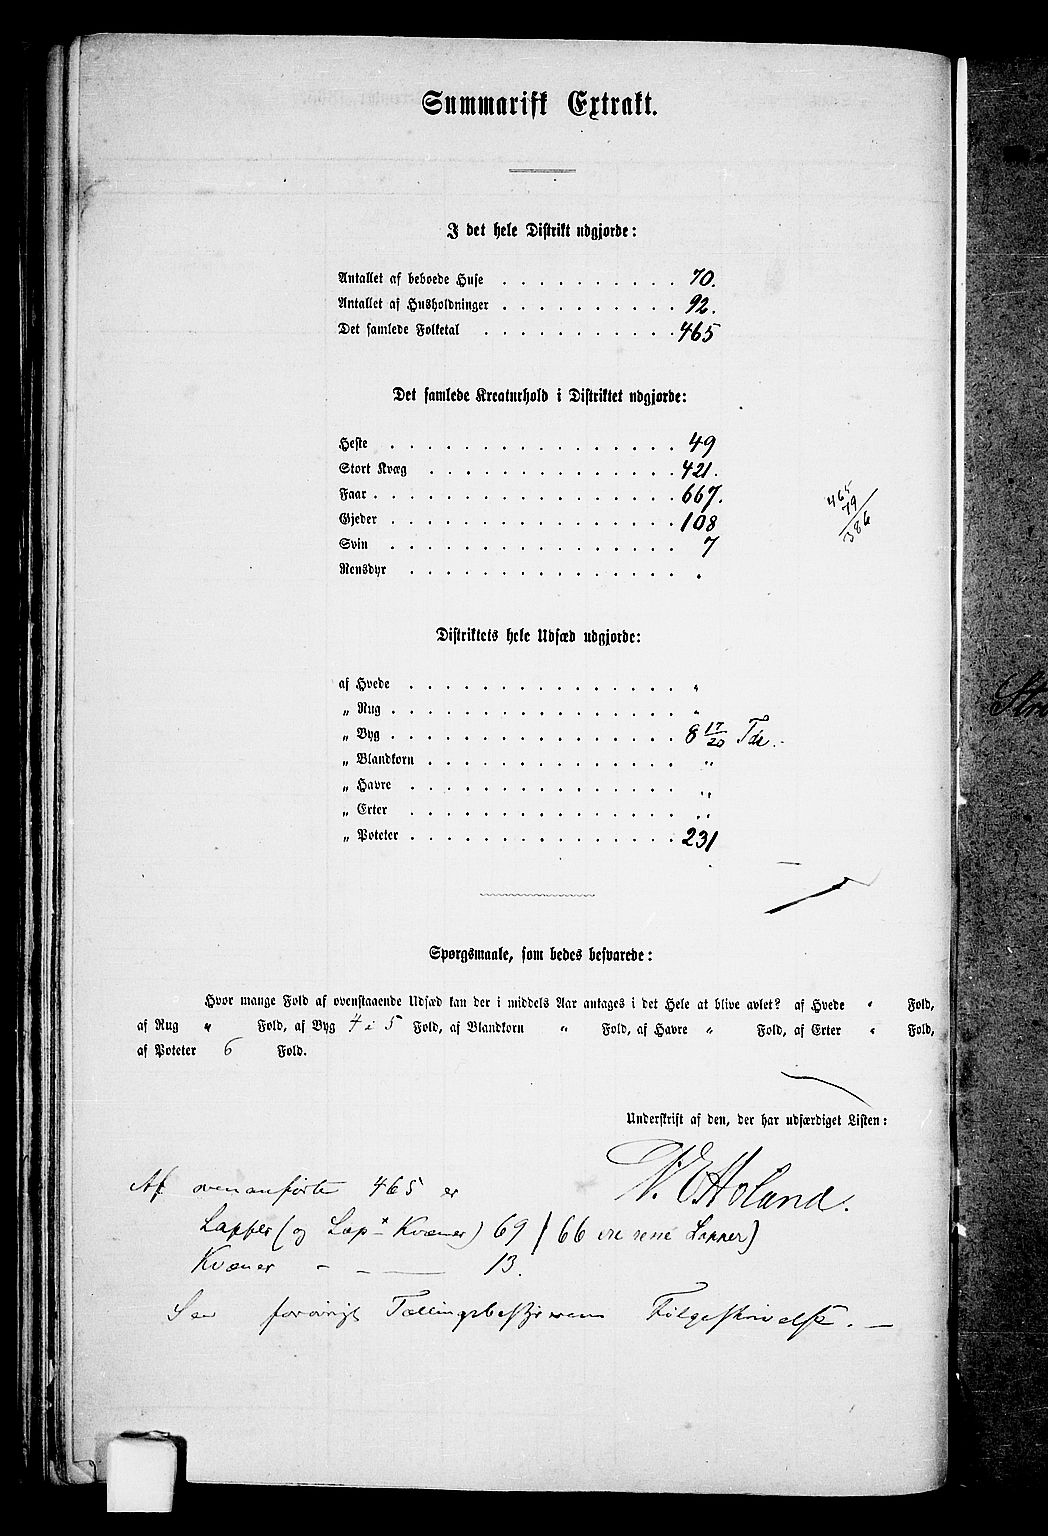 Summarisk Extrakt.
I det hele Distrikt udgjorde:
Antallet af beboede Huse . . . . . . . . . . 70.
Antallet af Husholdninger . . . . . . . . . . 92.
Det samlede Folketal . . . . . . . . . . . 465
Det samlede Kreaturhold i Distriktet udgjorde:
Heste . . . . . . . . . . . . . . . . 49
Stort Kvæg . . . . . . . . . . . . . . 421.
Faar . . . . . . . . . . . . . . . . . 667.
465
79
386
Gjeder . . . . . . . . . . . . . . . . 108
Svin . . . . . . . . . . . . . . . . 7
Rensdyr . . . . . . . . . . . . . . . .
Distriktets hele Udsæd udgjorde:
af Hvede . . . . . . . . . . . . . . . "
„ Rug . . . . . . . . . . . . . . . . "
„ Byg . . . . . . . . . . . . . . . . 8 17/20 Tdr.
„ Blandkorn . . . . . . . . . . . . . . "
„ Havre . . . . . . . . . . . . . . . "
„ Erter . . . . . . . . . . . . . . . "
„ Poteter . . . . . . . . . . . . . . . 231
Spørgsmaale, som bedes besvarede:
Hvor mange Fold af ovenstaaende Udsæd kan der i middels Aar antages i det Hele at blive avlet? af Hvede " Fold,
af Rug " Fold, af Byg 4 à 5 Fold, af Blandkorn " Fold, af Havre " Fold, af Erter " Fold,
af Poteter 6 Fold.
Underskrift af den, der har udfærdiget Listen:
Holand.
Af ovenanførte 465 er
Lapper (og Lap- Kvæner) 69 (66 ere rene Lapper)
Kvæner - - — 13.
See forøvrigt Tællingsbestyrerens Følgeskrivelse. —